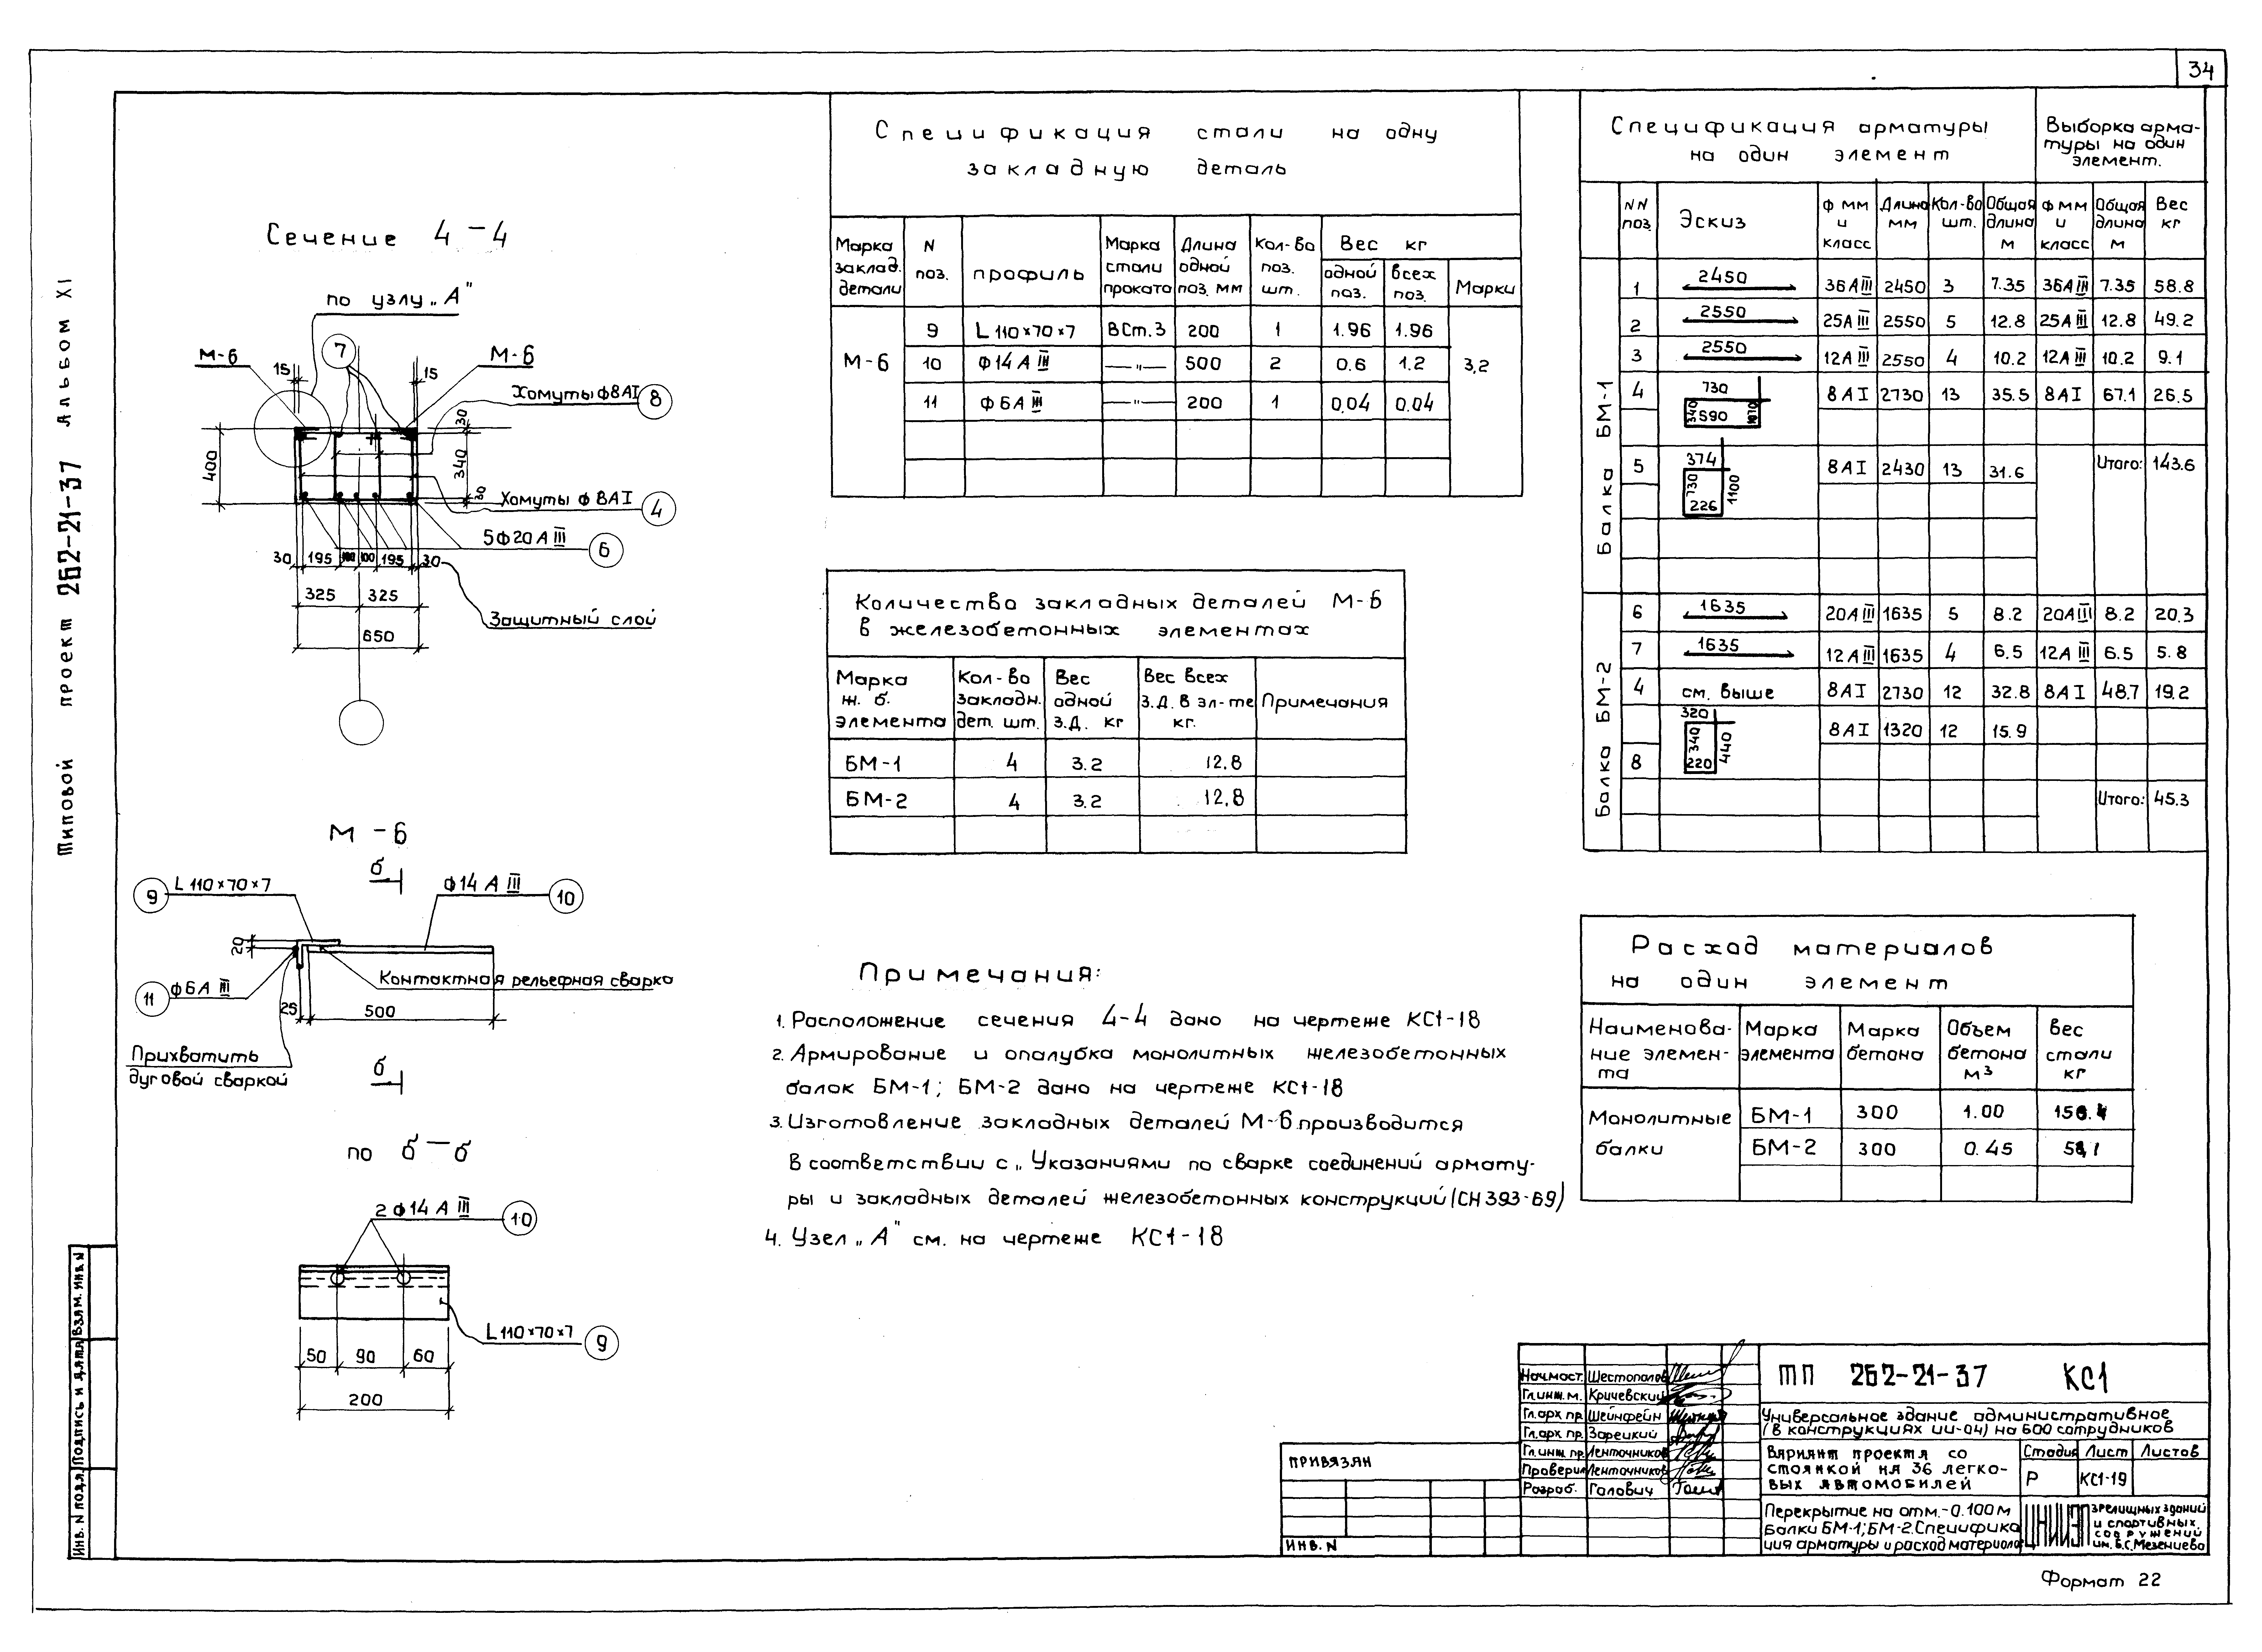 34
Типовой проект 262-21-37 Альбом XI
Сечение 4-4
по узлу „А"
7
М-6
М-6
15
15
Хомуты ф8АI
8
30
400
340
30
Хомуты ф 8АI
4
5ф20АIII
6
30 195 100 100 195 30
325 325
Защитный слой
650
М-6
б
9
L110×70×7
ф14 А III
10
20
Контактная рельефная сварка
11
ф6А III
25
500
Прихватить
дуговой сваркой
б
по б-б
2ф14 А III
10
L110×70×7
9
50 90 60
200
Спецификация стали на одну
закладную деталь
Марка заклад. детали
N поз.
профиль
Марка стали проката
Длина одной поз. мм
Кол-во поз. шт.
Вес кг
одной поз.
всех поз.
Марки
М-6
9 L110×70×7 ВСт.3 200 1 1.96 1.96
10 ф14А III —"— 500 2 0.6 1.2 3,2
11 ф6А III —"— 200 1 0,04 0.04
Количество закладных деталей М-6
в железобетонных элементах
Марка ж. б. элемента
Кол-во закладн. дет. шт.
Вес одной З.Д. кг
Вес всех З.Д. в эл-те кг.
Примечания
БМ-1 4 3.2 12.8
БМ-2 4 3.2 12,8
Примечания:
1. Расположение сечения 4-4 дано на чертеже КС1-18
2. Армирование и опалубка монолитных железобетонных
балок БМ-1; БМ-2 дано на чертеже КС1-18
3. Изготовление закладных деталей М-6 производится
в соответствии с „Указаниями по сварке соединений армату-
ры и закладных деталей железобетонных конструкций (СН 393-69)
4. Узел „А" см. на чертеже КС1-18
Спецификация арматуры
на один элемент
Выборка арма-
туры на один
элемент.
NN поз.
Эскиз
ф мм и класс
Длина мм
Кол-во шт.
Общая длина м
ф мм и класс
Общая длина м
Вес кг
Балка БМ-1
1 2450 36АIII 2450 3 7.35 36АIII 7.35 58.8
2 2550 25АIII 2550 5 12.8 25АIII 12.8 49.2
3 2550 12АIII 2550 4 10.2 12АIII 10.2 9.1
4 730 340 590 1070 8АI 2730 13 35.5 8АI 67.1 26.5
5 374 730 226 1100 8АI 2430 13 31.6 Итого: 143.6
Балка БМ-2
6 1635 20АIII 1635 5 8.2 20АIII 8.2 20.3
7 1635 12АIII 1635 4 6.5 12АIII 6.5 5.8
4 см. выше 8АI 2730 12 32.8 8АI 48.7 19.2
8 320 340 220 440 8АI 1320 12 15.9
Итого: 45.3
Расход материалов
на один элемент
Наименова-
ние элемен-
та
Марка элемента
Марка бетона
Объем бетона м³
Вес стали кг
Монолитные
балки
БМ-1 300 1.00 156.4
БМ-2 300 0.45 58,1
Нач.маст. Шестопалов
Гл.инж.м. Кричевский
Гл.арх.пр. Шейнфейн
Гл.арх.пр. Зарецкий
Гл.инж.пр. Ленточников
Проверил Ленточников
Разраб. Галович
ТП 262-21-37 КС1
Универсальное здание административное
(в конструкциях ИИ-04) на 600 сотрудников
Вариант проекта со
стоянкой на 36 легко-
вых автомобилей
Стадия Лист Листов
Р КС1-19
Перекрытие на отм.-0.100м
Балки БМ-1; БМ-2. Специфика
ция арматуры и расход материалов
ЦНИИЭП
зрелищных зданий
и спортивных
сооружений
им. Б.С. Мезенцева
Привязан
Инв. N
Инв. N подл. Подпись и дата Взам. инв. N
Формат 22